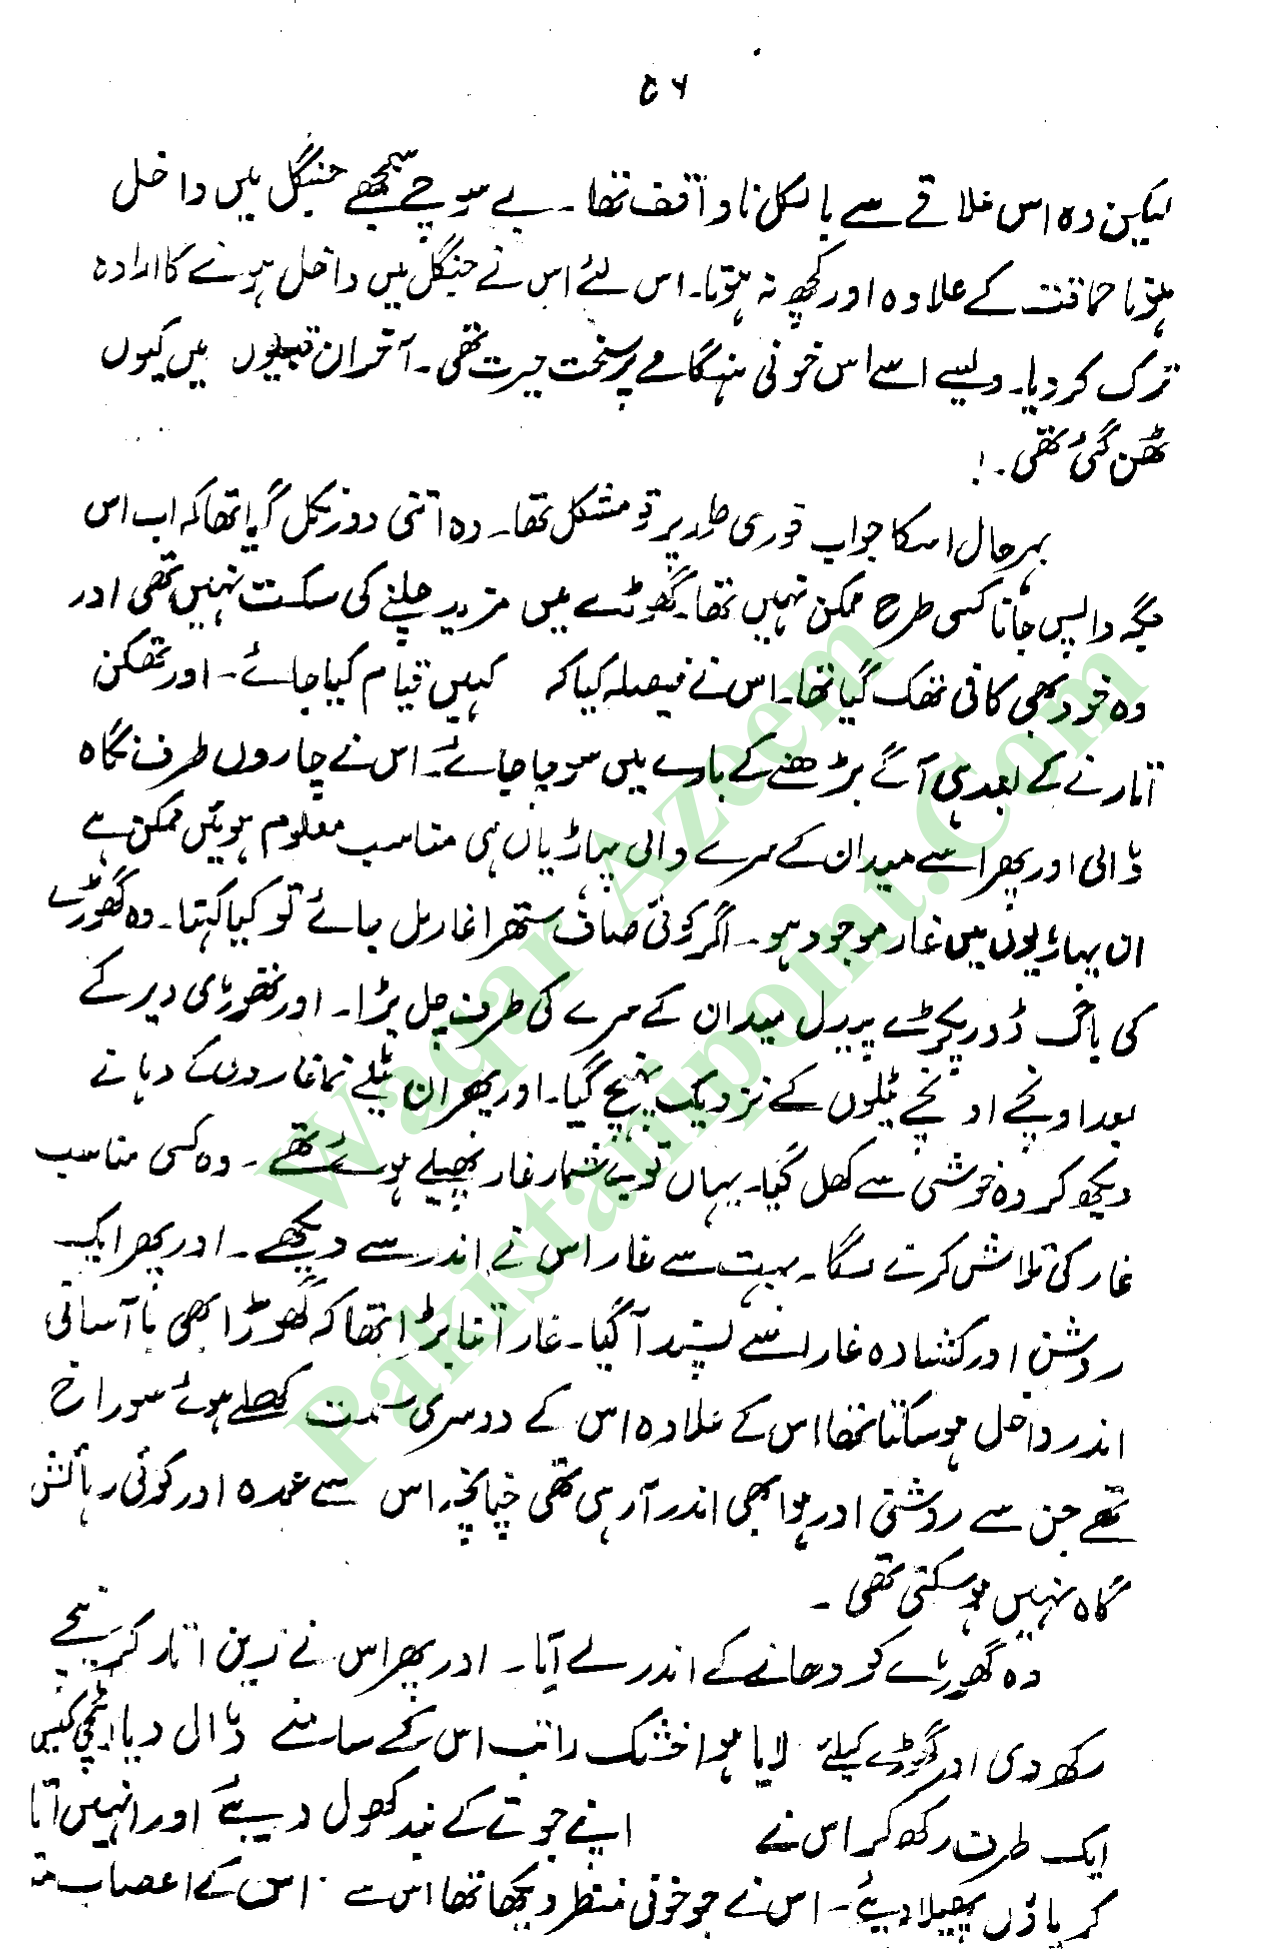 ۵۶
لیکن وہ اس علاقے سے بالکل ناواقف تھا۔ بے سوچے سمجھے جنگل میں داخل
ہونا حماقت کے علاوہ اور کچھ نہ ہوتا۔ اس لئے اس نے جنگل میں داخل ہونے کا ارادہ
ترک کر دیا۔ ویسے اسے اس خونی ہنگامے پر سخت حیرت تھی۔ آخر ان قبیلوں میں کیوں
ٹھن گئی تھی۔!
بہرحال اسکا جواب فوری طور پر تو مشکل تھا۔ وہ اتنی دور نکل گیا تھا کہ اب اس
جگہ واپس جانا کسی طرح ممکن نہیں تھا۔ گھوڑے میں مزید چلنے کی سکت نہیں تھی اور
وہ خود بھی کافی تھک گیا تھا۔ اس نے فیصلہ کیا کہ کہیں قیام کیا جائے۔ اور تھکن
اتارنے کے بعد ہی آگے بڑھنے کے بارے میں سوچا جائے۔ اس نے چاروں طرف نگاہ
ڈالی اور پھر اسے میدان کے سرے والی پہاڑیاں ہی مناسب معلوم ہوئیں ممکن ہے
ان پہاڑیوں میں غار موجود ہو۔ اگر کوئی صاف ستھرا غار مل جائے تو کیا کہنا۔ وہ گھوڑے
کی باگ ڈور پکڑے پیدل میدان کے سرے کی طرف چل پڑا۔ اور تھوڑی دیر کے
بعد اونچے اونچے ٹیلوں کے نزدیک پہنچ گیا۔ اور پھر ان ٹیلے نما غاروں کے دہانے
دیکھ کر وہ خوشی سے کھل گیا۔ یہاں تو بے شمار غار پھیلے ہوئے تھے۔ وہ کسی مناسب
غار کی تلاش کرنے لگا۔ بہت سے غار اس نے اندر سے دیکھے۔ اور پھر ایک
روشن اور کشادہ غار اسے پسند آ گیا۔ غار اتنا بڑا تھا کہ گھوڑا بھی باآسانی
اندر داخل ہو سکتا تھا اس کے علاوہ اس کے دوسری سمت کھلے ہوئے سوراخ
تھے جن سے روشنی اور ہوا بھی اندر آ رہی تھی چنانچہ اس سے عمدہ اور کوئی رہائش
گاہ نہیں ہو سکتی تھی۔
وہ گھوڑے کو دھانے کے اندر لے آیا۔ اور پھر اس نے زین اتار کر نیچے
رکھ دی اور گھوڑے کیلئے لایا ہوا خشک راتب اس کے سامنے ڈال دیا۔ اٹیچی کیس
ایک طرف رکھ کر اس نے اپنے جوتے کے بند کھول دیئے اور انہیں اتا
کر پاؤں پھیلا دیئے۔ اس نے جو خونی منظر دیکھا تھا اس سے اس کے اعصاب
Waqar Azeem
Pakistanipoint.Com